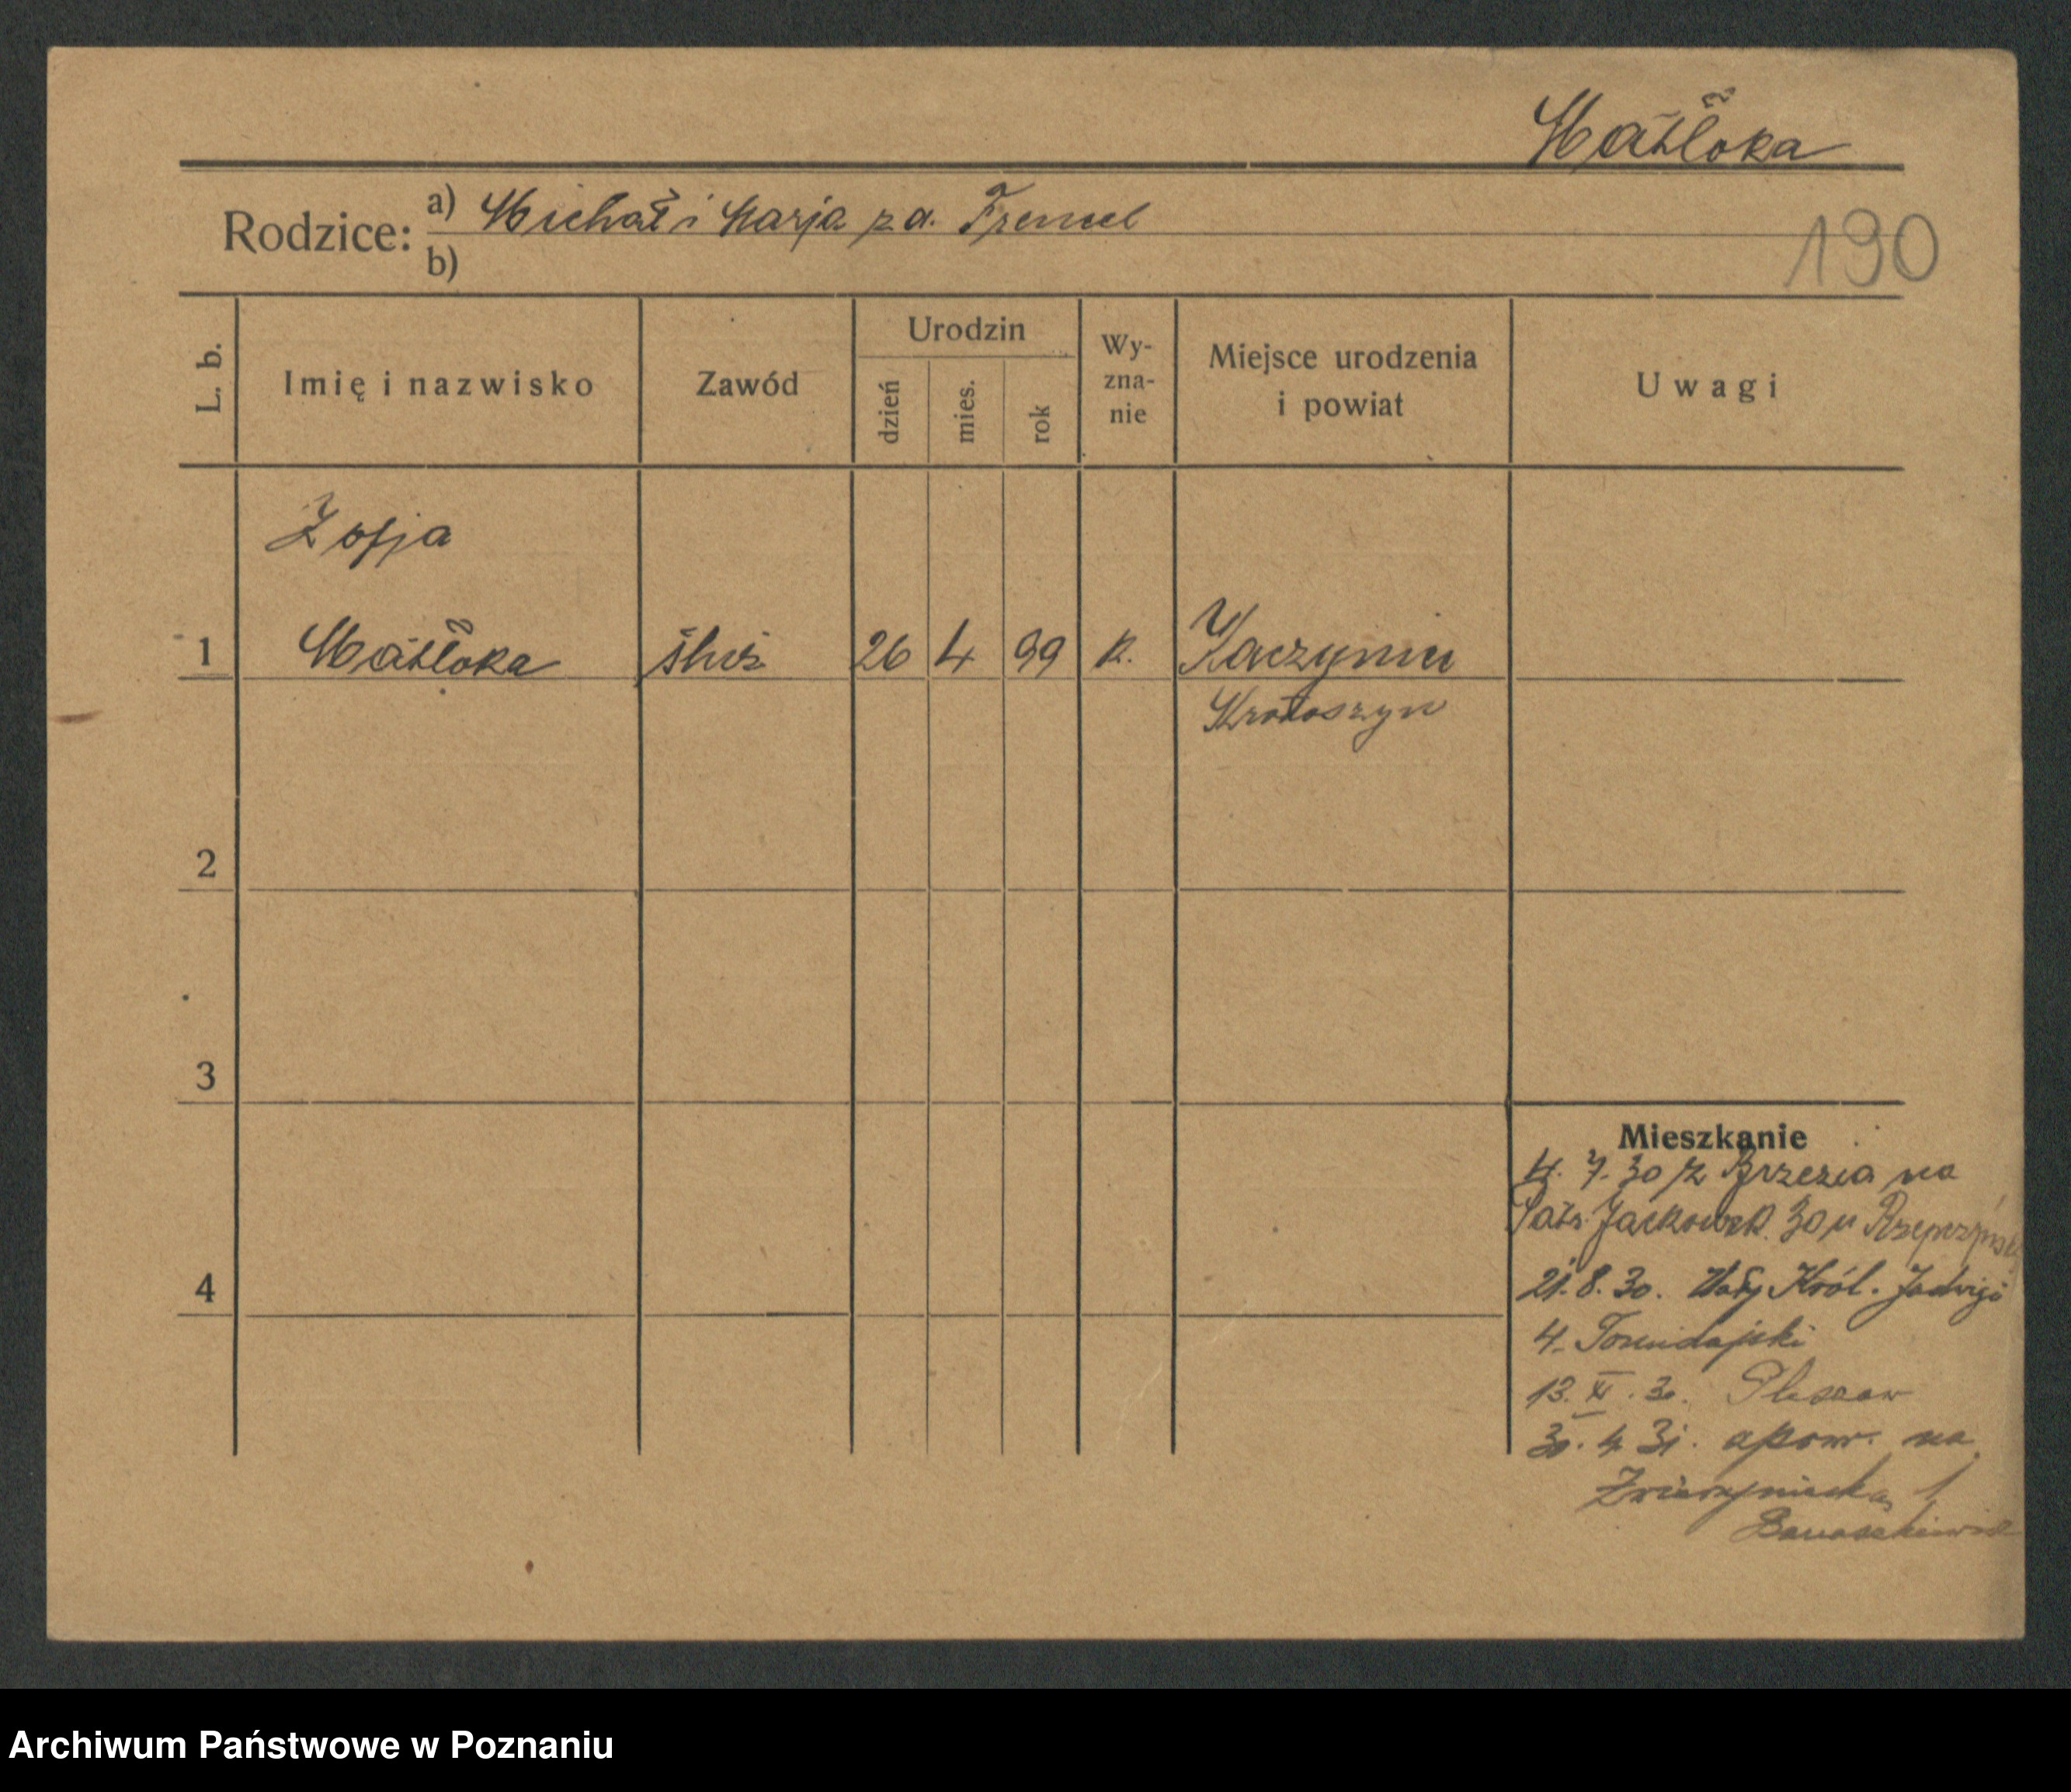 Matłoka
Rodzice: a) Michał i Marja z d. Frencel
b)
190
L. b.
Imię i nazwisko
Zawód
Urodzin
dzień
mies.
rok
Wy-
zna-
nie
Miejsce urodzenia
i powiat
Uwagi
Zofja
1 Matłoka służ. 26 4 99 k.
Krotoszyn
2
3
Mieszkanie
4. 7. 30 z Brzezia na
Jackowsk. 30 u
4
21. 8. 30. Wały Król. Jadwigi
4.
13. XI. 30. Pleszew
30. 4 31. spow. na
Zwierzyniecka 1
Banaszkiewicz
Archiwum Państwowe w Poznaniu